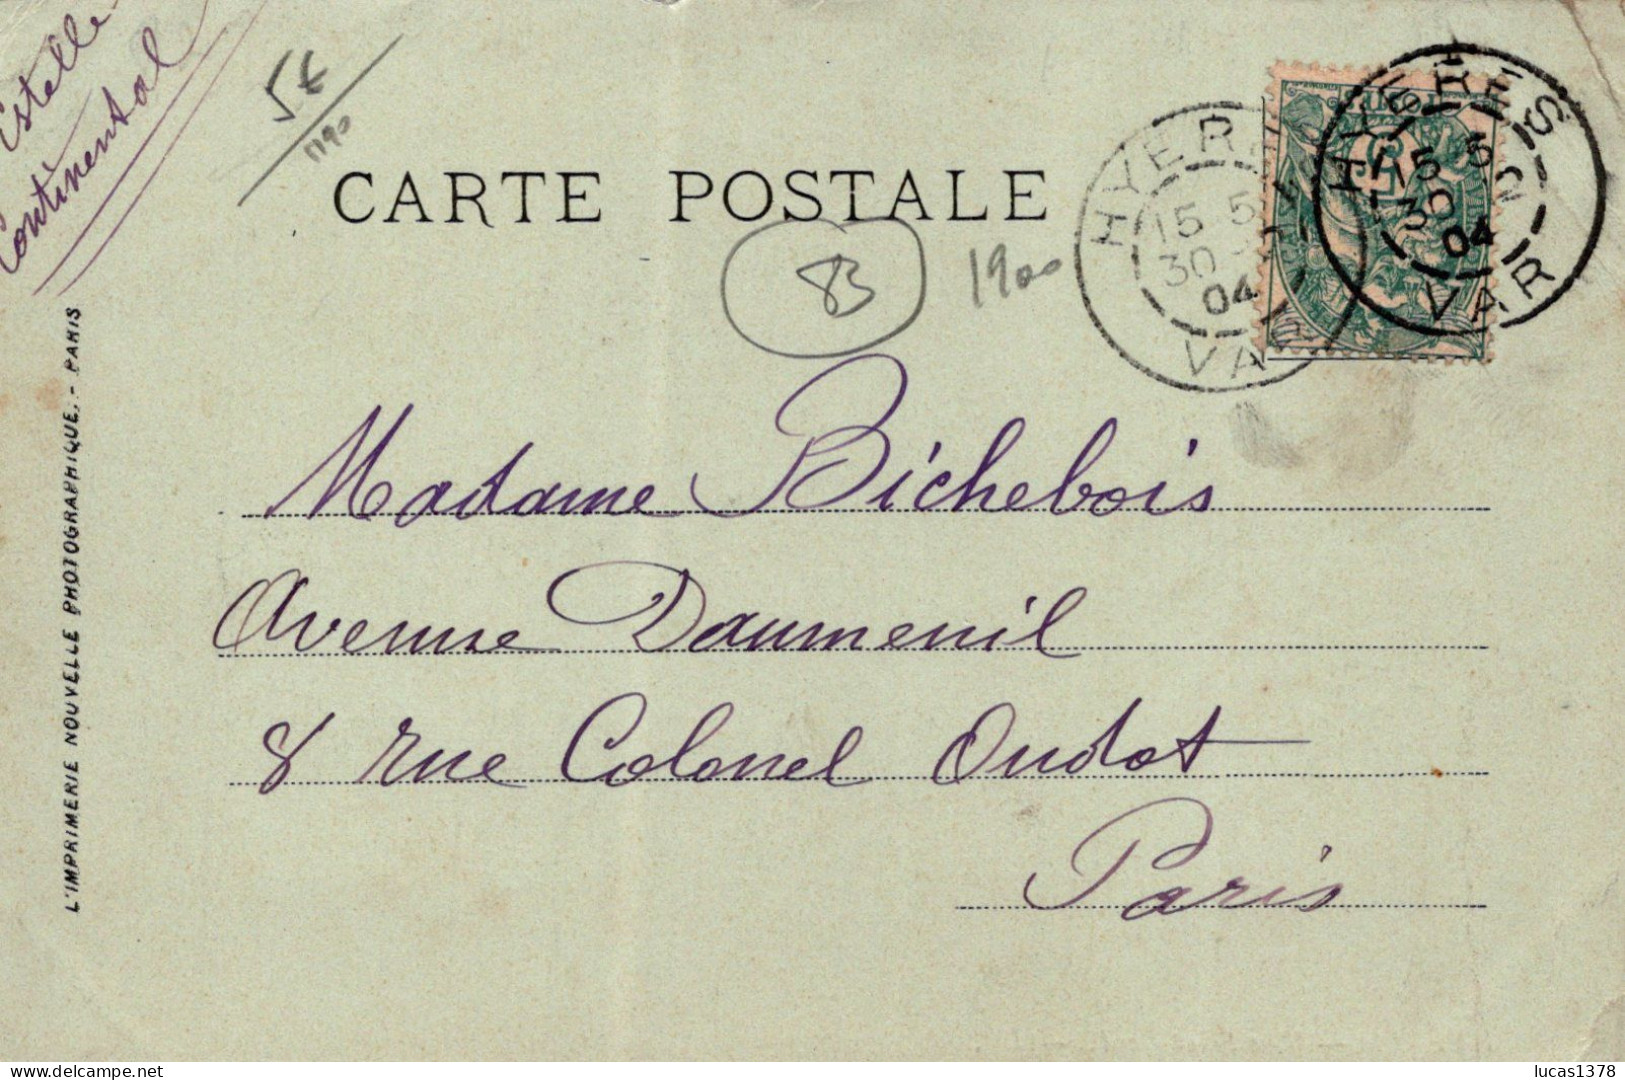 Estelle
Continental
5€
1190
CARTE POSTALE
83
1900
HYERES
15 5
30
04
VAR
HYERES
15 5
30
04
VAR
Madame Bichebois
Avenue Daumenil
8 rue Colonel Oudot
Paris
L'IMPRIMERIE NOUVELLE PHOTOGRAPHIQUE. - PARIS
delcampe.net
lucas1378